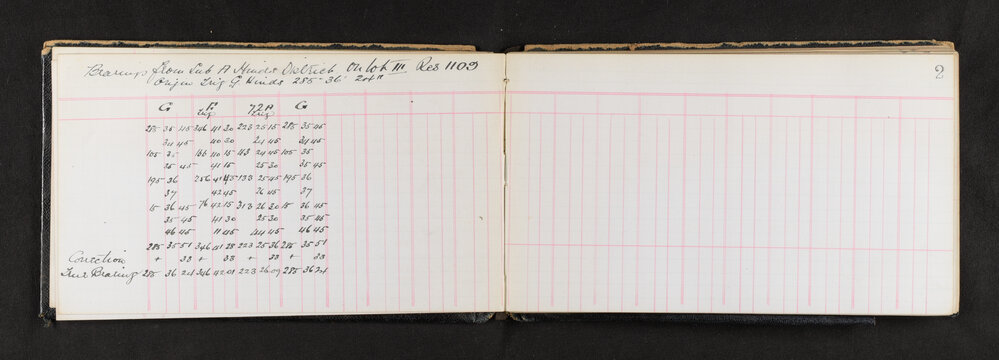 Bearings from Sub A Hinds District on lot III Res 1109
Origin Trig G Hinds 285° 36' 24"
2
G F 72A G
Trig Trig
285 35 45 346 41 30 223 25 15 285 35 45
34 45 40 30 24 45 34 45
105 35 166 40 15 43 24 45 105 35
35 45 41 15 25 30 35 45
195 36 256 41 45 133 25 45 195 36
37 42 45 26 45 37
15 36 45 76 42 15 313 26 30 15 36 45
35 45 41 30 25 30 35 45
46 45 11 45 44 45 46 45
285 35 51 346 41 28 223 25 36 285 35 51
Correction + 33 + 33 + 33 + 33
True Bearing 285 36 24 346 42 01 223 26 09 285 36 24